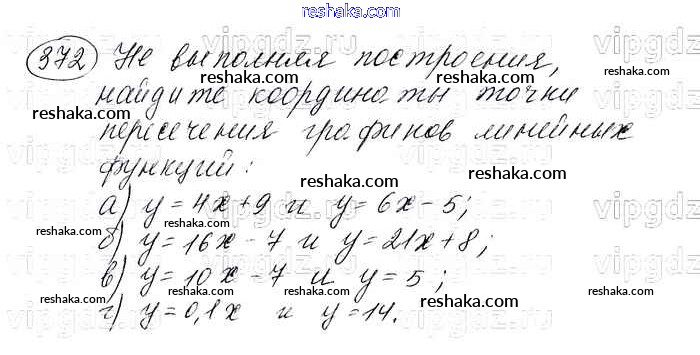 reshaka.com
372 Не выполняя построения,
найдите координаты точки
пересечения графиков линейных
функций:
а) y = 4x + 9 и y = 6x - 5;
б) y = 16x - 7 и y = 21x + 8;
в) y = 10x - 7 и y = 5;
г) y = 0,1x и y = 14.
reshaka.com
reshaka.com
reshaka.com
reshaka.com
reshaka.com
reshaka.com
reshaka.com
reshaka.com
reshaka.com
reshaka.com
reshaka.com
reshaka.com
vipgdz.ru
vipgdz